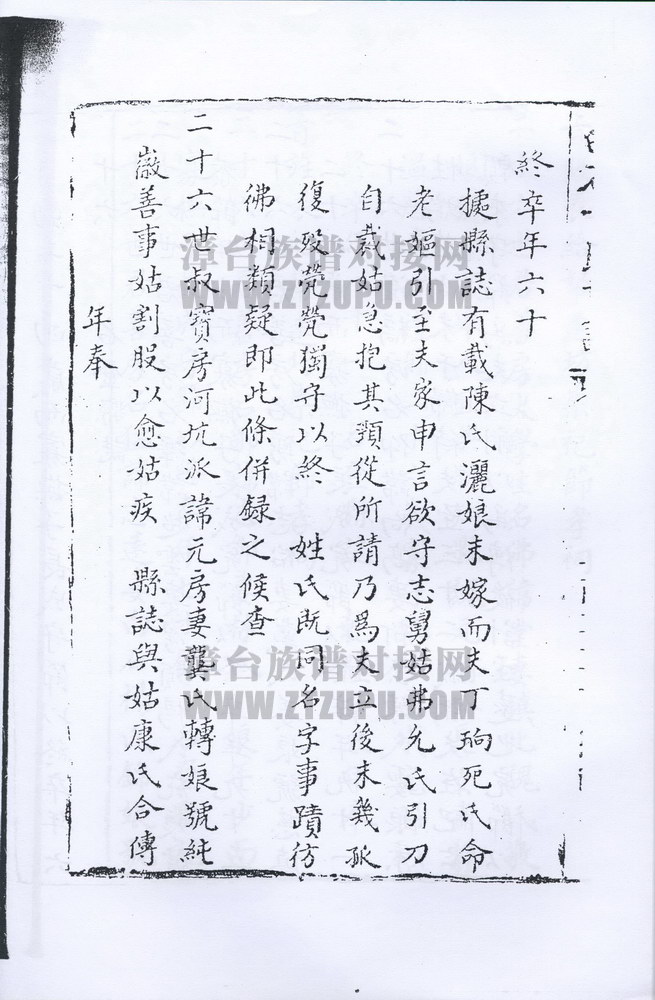 終卒年六十
據縣誌有載陳氏灑娘未嫁而夫丁珦死氏命
老嫗引至夫家申言欲守志舅姑弗允氏引刀
自裁姑急抱其頸從所請乃爲夫立後未幾孤
復歿煢煢獨守以終 姓氏既同名字事蹟彷
彿相類疑即此條併録之候查
二十六世叔寶房河坑派諱元房妻龔氏轉娘號純
嶶善事姑割股以愈姑疾 縣誌與姑康氏合傳
年奉
漳台族谱对接网
WWW.ZTZUPU.COM
漳台族谱对接网
WWW.ZTZUPU.COM